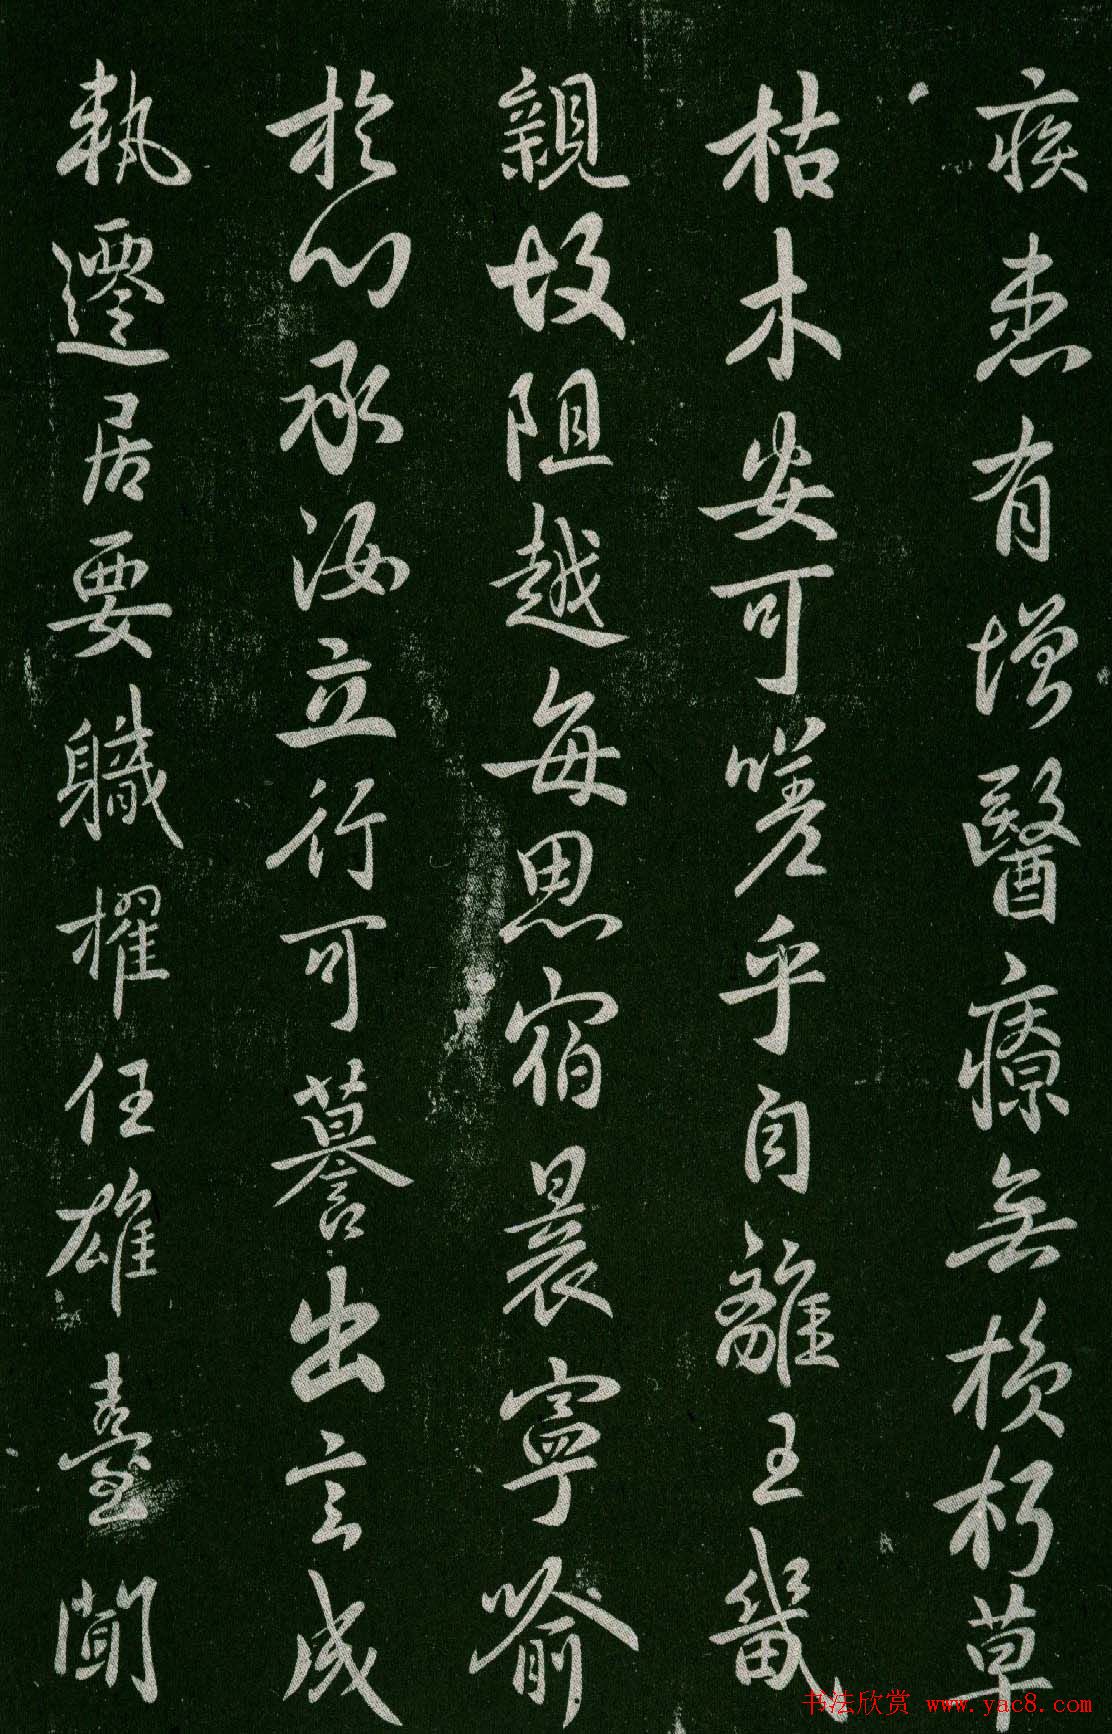 疾患有增醫療無損朽草
枯木安可嗟乎自離王畿
親故阻越每思宿晨寧喻
於心承汝立行可譽出言成
執遷居要職擢任雄臺聞
书法欣赏 www.yac8.com